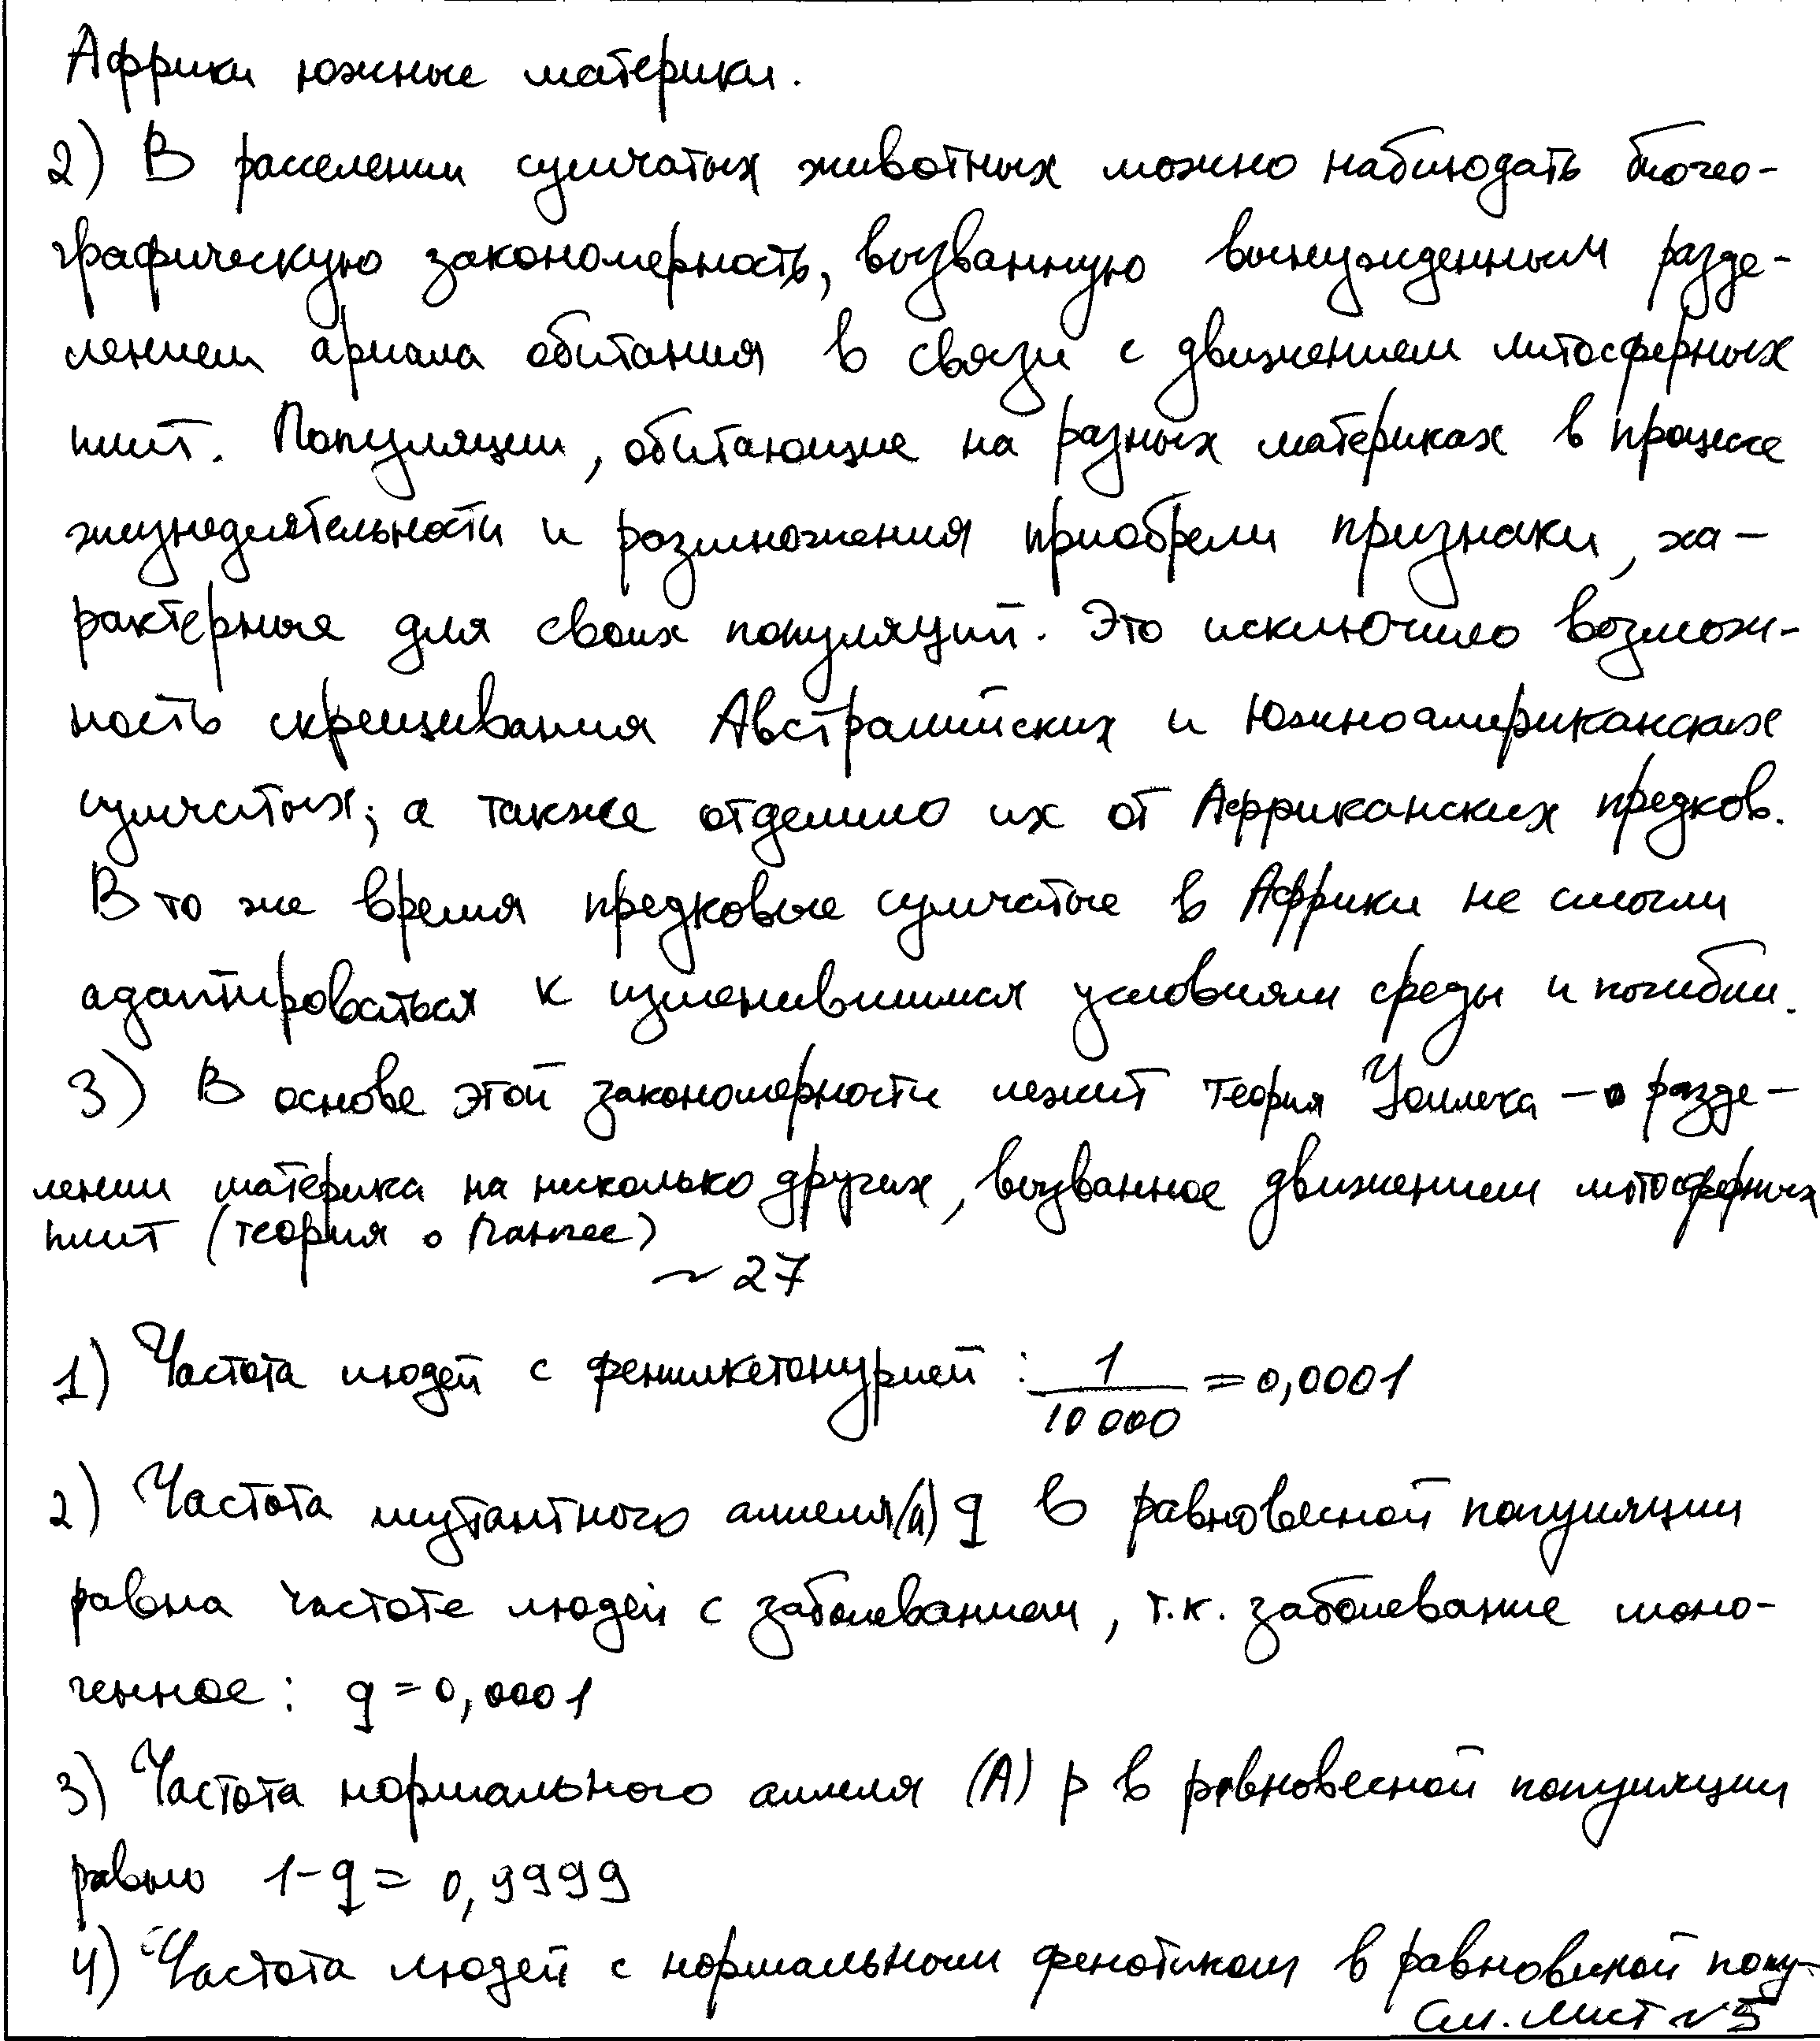 Африки южные материки.
2) В расселении сумчатых животных можно наблюдать биогео-
графическую закономерность, вызванную вынужденным разде-
лением ариала обитания в связи с движением литосферных
плит. Популяции, обитающие на разных материках в процессе
жизнедеятельности и размножения приобрели признаки, ха-
рактерные для своих популяций. Это исключило возмож-
ность скрещивания Австралийских и Южноамериканских
сумчатых; а также отделило их от Африканских предков.
В то же время предковые сумчатые в Африки не смогли
адаптироваться к изменившимся условиям среды и погибли.
3) В основе этой закономерности лежит теория Уоллеса – о разде-
лении материка на несколько других, вызванное движением литосферных
плит (теория о Пангее)
~ 27
1) Частота людей с фенилкетонурией : 1/10 000 = 0,0001
2) Частота мутантного аллеля (а) q в равновесной популяции
равна частоте людей с заболеванием, т.к. заболевание моно-
генное: q = 0,0001
3) Частота нормального аллеля (А) p в равновесной популяции
равно 1-q = 0,9999
4) Частота людей с нормальным фенотипом в равновесной попу-
См. лист №5